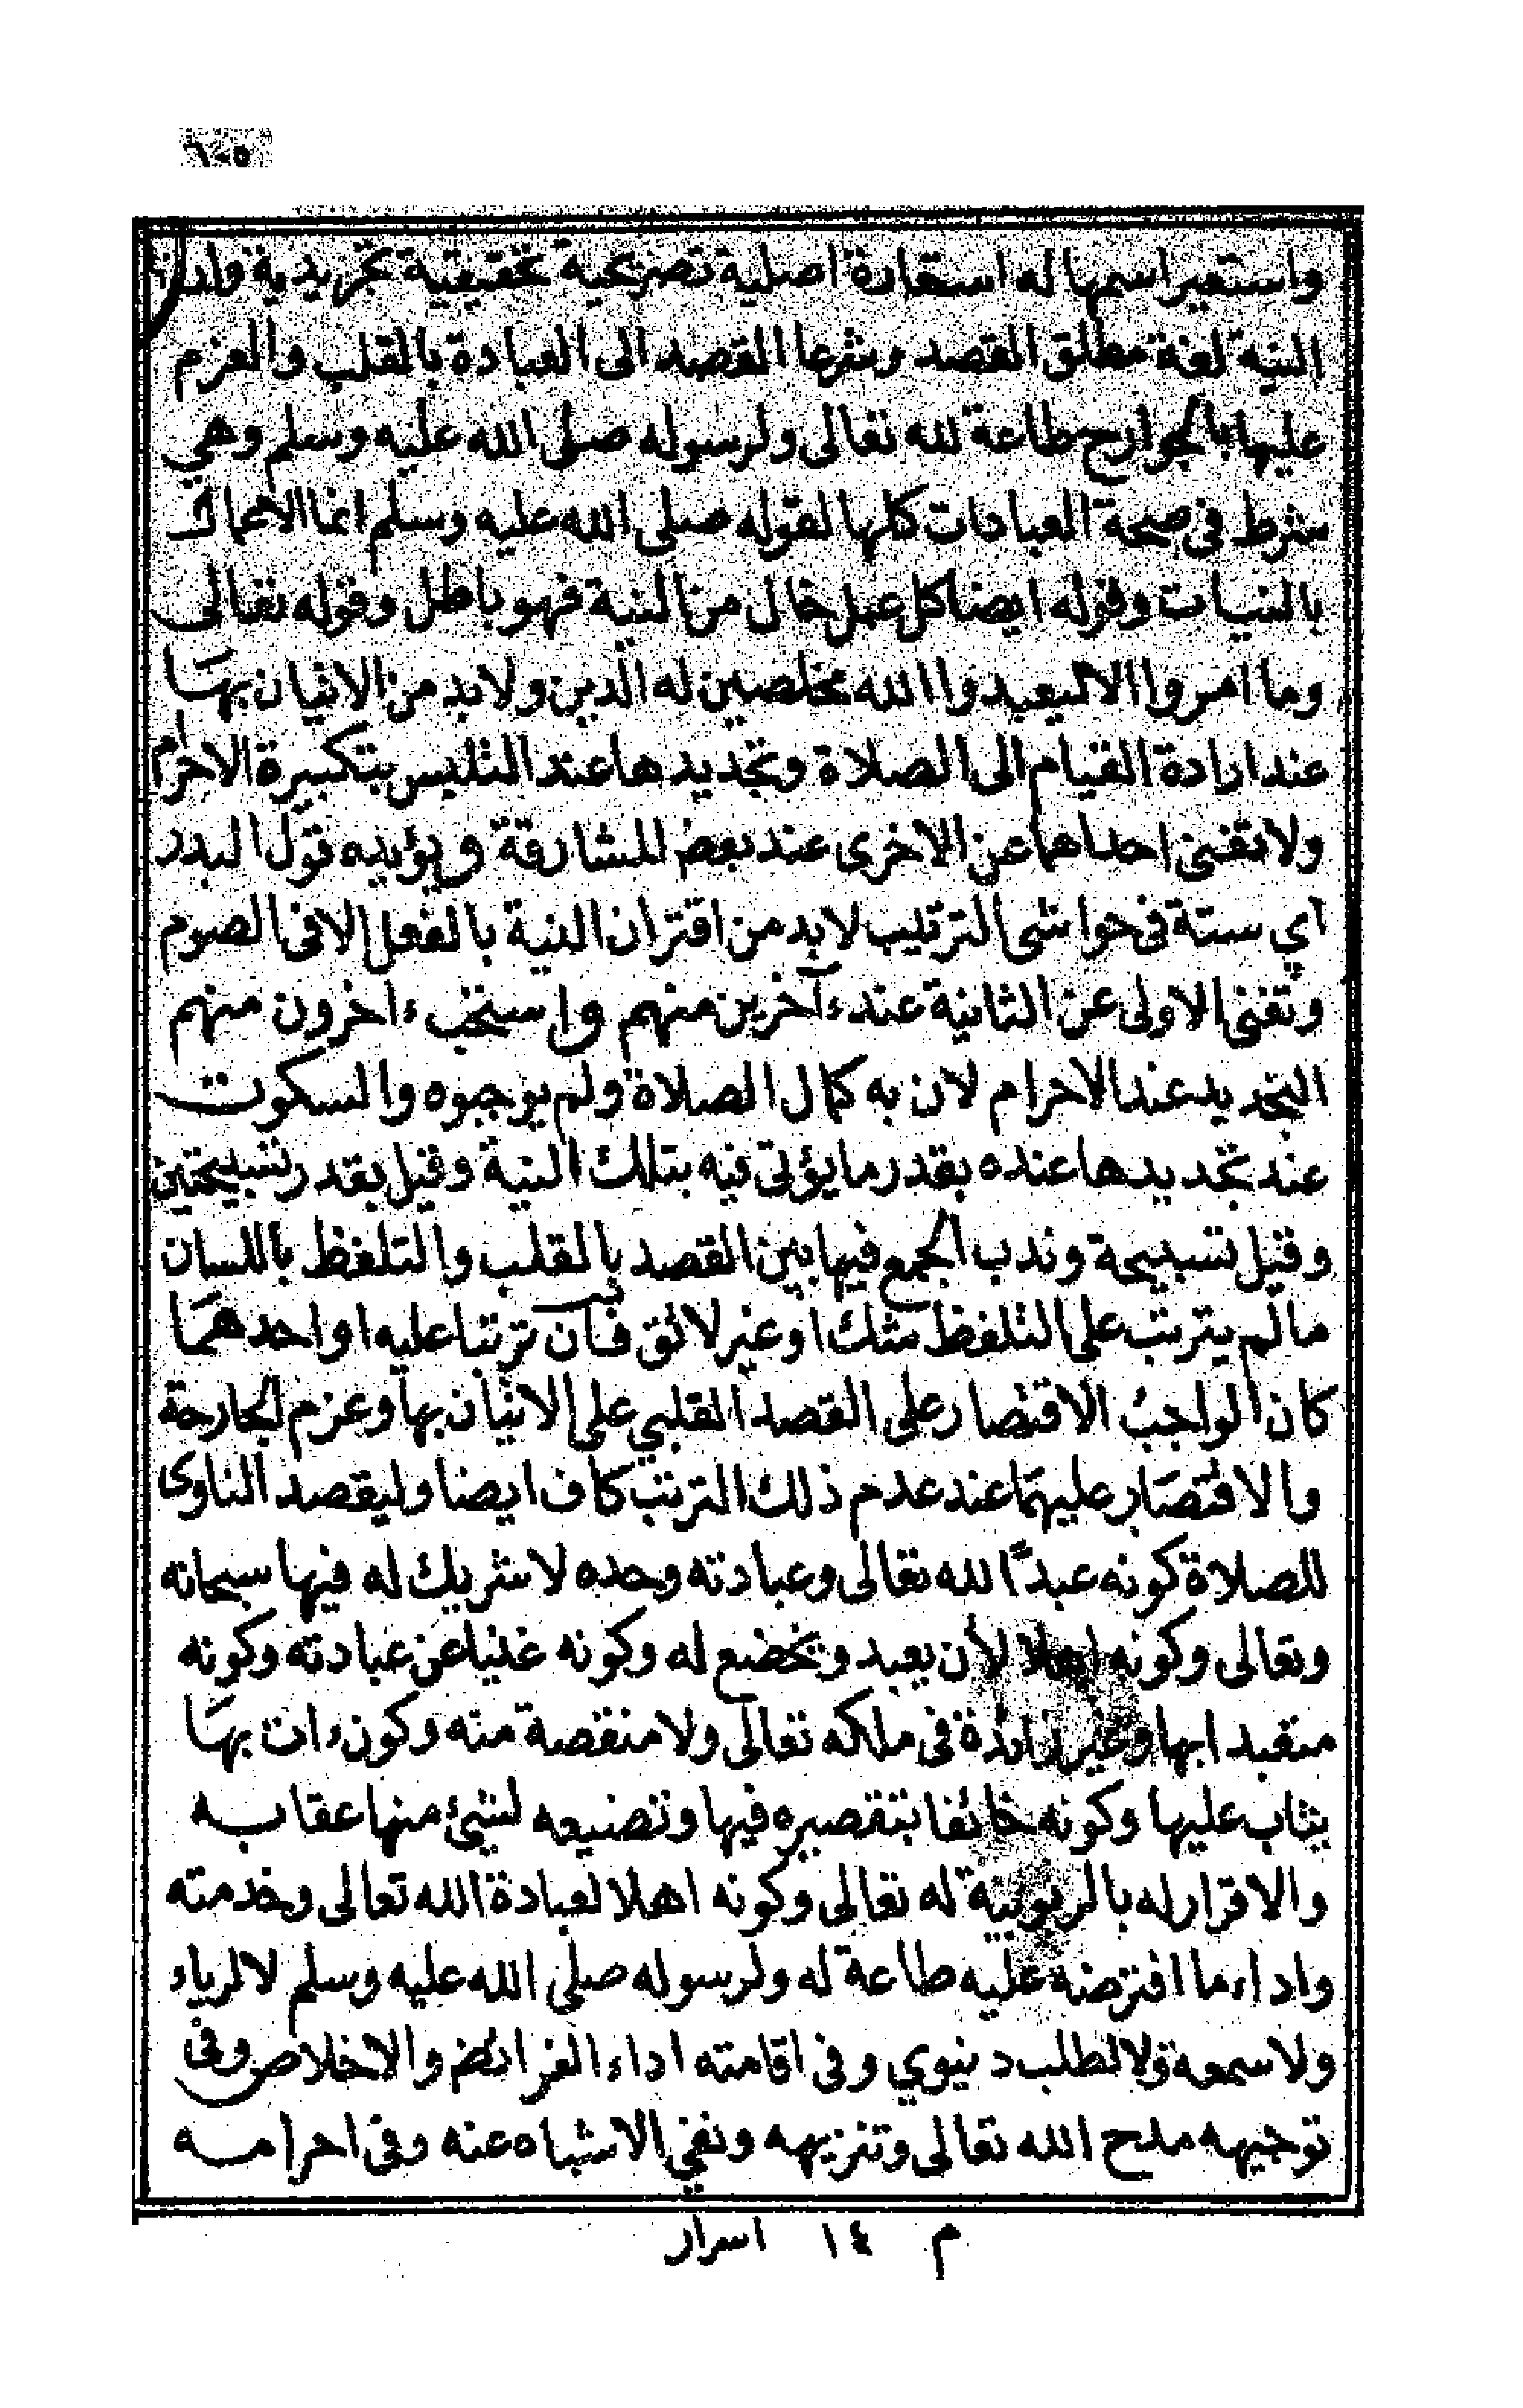 ١٠٥
واستعير اسمها له استعارة اصلية تصريحية تحقيقية تجريدية وان
النية لغة مطلق القصد وشرعا القصد الى العبادة بالقلب والعزم
عليها بالجوارح طاعة لله تعالى ولرسوله صلى الله عليه وسلم وهي
شرط في صحة العبادات كلها لقوله صلى الله عليه وسلم انما الاعمال
بالنيات وقوله ايضا كل عمل خال من النية فهو باطل وقوله تعالى
وما امروا الا ليعبدوا الله مخلصين له الدين ولا بد من الاتيان بها
عند ارادة القيام الى الصلاة وتجديدها عند التلبس بتكبيرة الاحرام
ولا تغنى احداهما عن الاخرى عند بعض المشارقة ويؤيده قول البدر
اي ستة في حواشى الترتيب لابد من اقتران النية بالفعل الا في الصوم
وتغنى الاولى عن الثانية عند ءآخرين منهم واستحب ءاخرون منهم
التجديد عند الاحرام لان به كمال الصلاة ولم يوجبوه والسكوت
عند تجديدها عنده بقدر ما يؤتى فيه بتلك النية وقيل بقدر تسبيحتين
وقيل تسبيحة وندب الجمع فيها بين القصد بالقلب والتلفظ باللسان
ما لم يترتب على التلفظ شك او غير لائق فان ترتبا عليه او احدهما
كان الواجب الاقتصار على القصد القلبي على الاتيان بها وعزم الجارحة
والاقتصار عليهما عند عدم ذلك الترتب كاف ايضا وليقصد الناوى
للصلاة كونه عبدًا لله تعالى وعبادته وحده لا شريك له فيها سبحانه
وتعالى وكونه اهلا لأن يعبد ويخضع له وكونه غنيا عن عبادته وكونه
متعبدا بها وغير زائدة في ملكه تعالى ولا منقصة منه وكون ءات بها
يثاب عليها وكونه خائفا بتقصيره فيها وتضييعه لشئ منها عقابه
والاقرار له بالربوبية له تعالى وكونه اهلا لعبادة الله تعالى وخدمته
واداء ما افترضه عليه طاعة له ولرسوله صلى الله عليه وسلم لا لرياء
ولا سمعة ولا لطلب دنيوي وفي اقامته اداء الفرائض والاخلاص وفى
توجيهه مدح الله تعالى وتنزيهه ونفي الاشباه عنه وفى احرامه
م ١٤ اسرار